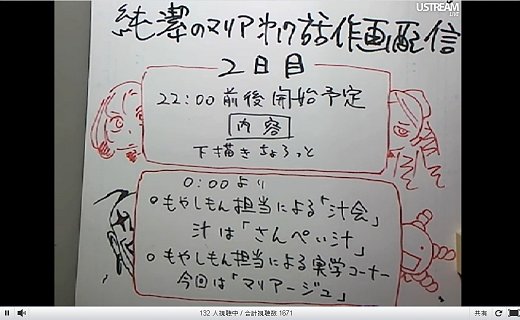 USTREAM
LIVE
純潔のマリア第7話作画配信
2日目
22:00 前後開始予定
内容
下描きちょろっと
0:00より
○もやしもん担当による「汁会」
汁は「さんぺい汁」
○もやしもん担当による実学コーナー
今回は「マリアージュ」
132 人視聴中 / 合計視聴数 1671
共有